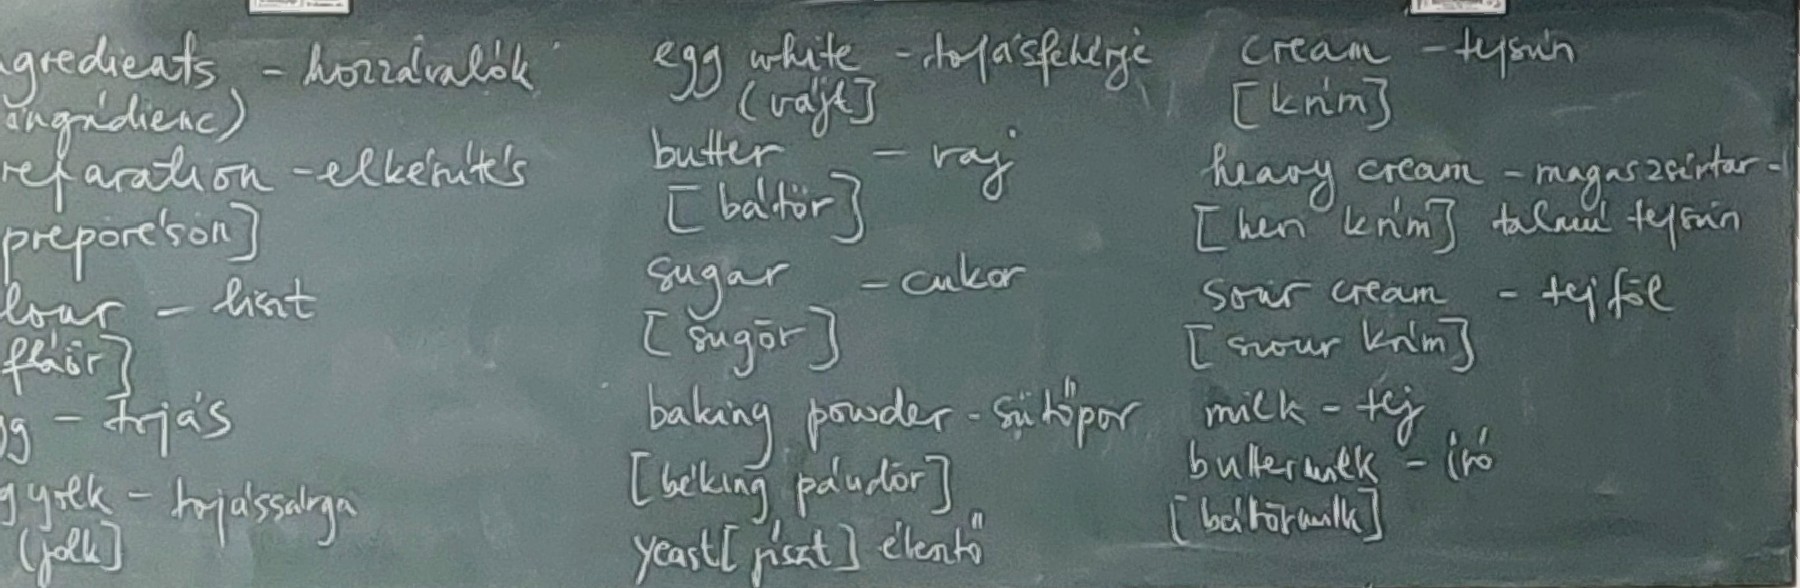 ngredients - hozzávalók
ingrídienc)
reparation - elkészítés
prepöré'sön]
lour - liszt
fláör]
gg - tojás
g yolk - tojássárga
(jolk]
egg white - tojásfehérje
(vájt]
butter - vaj
[bátör]
sugar - cukor
[sugör]
baking powder - sütőpor
[béking páudör]
yeast [jíszt] élesztő
cream - tejszín
[krím]
heavy cream - magas zsírtar-
[hevi krím] talmú tejszín
sour cream - tejföl
[szour krím]
milk - tej
buttermilk - író
[bátörmilk]